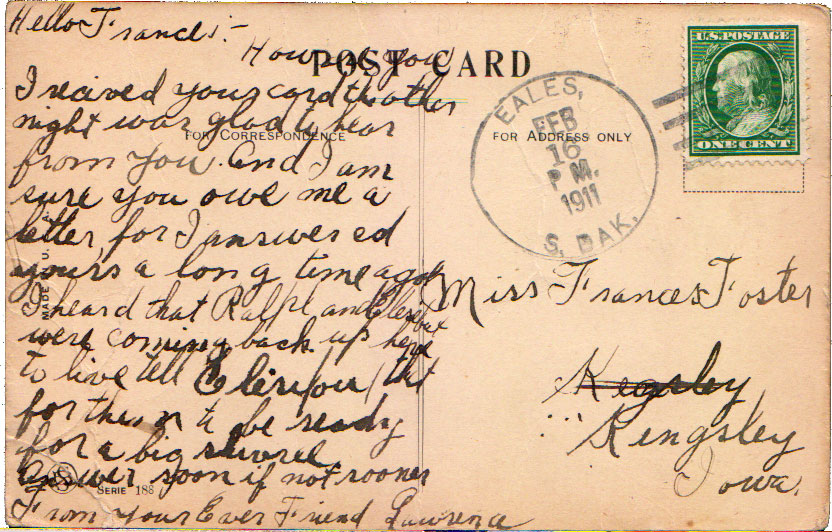 Hello Frances:-
How are you
POST CARD
I recived your card the other
night was glad to hear
FOR CORRESPONDENCE
from you. And I am
sure you owe me a
letter, for I answered
yours a long time ago.
I heard that Ralph and
were coming back up here
to live tell that
for them to be ready
for a big
answer soon if not sooner
From your Ever Friend Lawrence
SERIE 188
MADE IN U.S.A.
EALES,
FEB
16
P M.
1911
S. DAK.
U.S.POSTAGE
ONE CENT
FOR ADDRESS ONLY
Miss Frances Foster
Kegsley
Kingsley
Iowa.